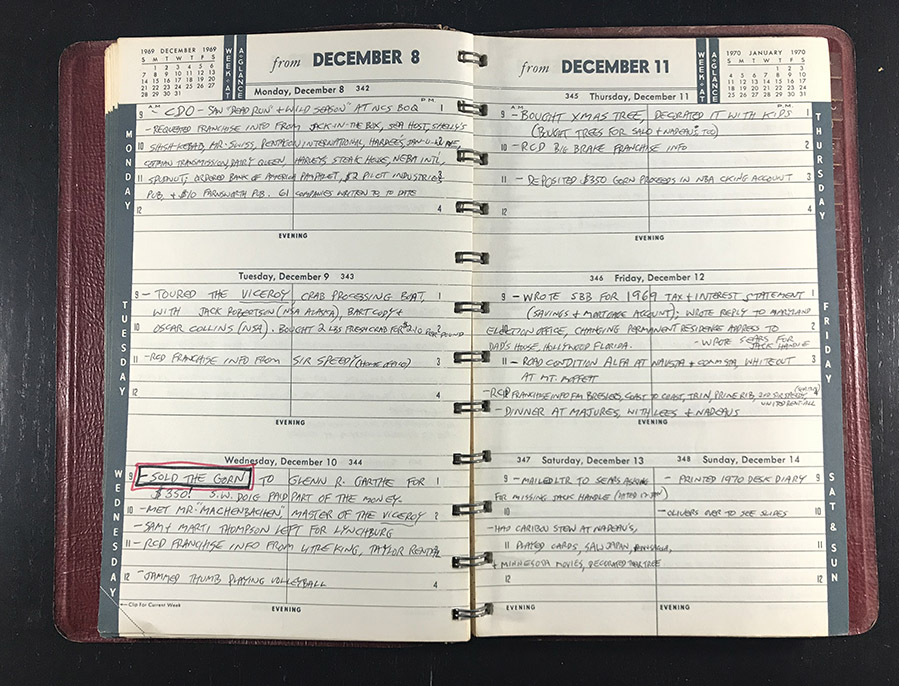 1969 DECEMBER 1969
S M T W T F S
1 2 3 4 5 6
7 8 9 10 11 12 13
14 15 16 17 18 19 20
21 22 23 24 25 26 27
28 29 30 31
WEEK-AT
A-GLANCE
from DECEMBER 8
Monday, December 8 342
A.M. P.M.
9 - CDO - SAW "DEAD RUN" + "WILD SEASON" AT NCS BOQ 1
- REQUESTED FRANCHISE INFO FROM JACK-IN-THE BOX, SEA HOST, SHELLY'S
10 SHISH-KEBAB, MR. SWISS, PENTACON INTERNATIONAL, HARDEE'S,
COTTMAN TRANSMISSION, DAIRY QUEEN, HARLEYS, STEAK HOUSE, NEBA INTL,
11 SPUDNUTS, ORDERED BANK OF AMERICA PAMPLET, $2 PILOT INDUSTRIES 3
PUB, + $10 FARNSWORTH PUB. 61 COMPANIES WRITTEN TO TO DATE
12 4
EVENING
MONDAY
Tuesday, December 9 343
9 - TOURED THE VICEROY, CRAB PROCESSING BOAT, 1
WITH JACK ROBERTSON (NSA ALASKA), BART CODY +
10 OSCAR COLLINS (NSA). BOUGHT 2 LBS FRESH CRAB FOR $2.10 PER POUND 2
11 - RCD FRANCHISE INFO FROM SIR SPEEDY (HOME OFFICE) 3
12 4
EVENING
TUESDAY
Wednesday, December 10 344
9 - SOLD THE GORN TO GLENN R. GARTHE FOR 1
$350! S.W. DOIG PAID PART OF THE MONEY.
10 - MET MR. "MACHENBACHEN" MASTER OF THE VICEROY 2
- SAM + MARTI THOMPSON LEFT FOR LYNCHBURG
11 - RCD FRANCHISE INFO FROM LITTLE KING, TAYLOR RENTAL
12 - JAMMED THUMB PLAYING VOLLEYBALL 4
←Clip For Current Week
EVENING
WEDNESDAY
from DECEMBER 11
WEEK-AT
A-GLANCE
1970 JANUARY 1970
S M T W T F S
1 2 3
4 5 6 7 8 9 10
11 12 13 14 15 16 17
18 19 20 21 22 23 24
25 26 27 28 29 30 31
345 Thursday, December 11
A.M. P.M.
9 - BOUGHT XMAS TREE, DECORATED IT WITH KIDS 1
(BOUGHT TREES FOR SALO + NADEAU, TOO)
10 - RCD BIG BRAKE FRANCHISE INFO 2
11 - DEPOSITED $350 GORN PROCEEDS IN NBA CKING ACCOUNT 3
12 4
EVENING
THURSDAY
346 Friday, December 12
9 - WROTE SBB FOR 1969 TAX + INTEREST STATEMENT 1
(SAVINGS + MORTGAGE ACCOUNT); WROTE REPLY TO MARYLAND
10 ELECTION OFFICE, CHANGING PERMANENT RESIDENCE ADDRESS TO 2
DAD'S HOUSE, HOLLYWOOD FLORIDA. - WROTE SEARS FOR
JACK HANDLE
11 - ROAD CONDITION ALFA AT NAVSTA + COMMSTA, WHITEOUT 3
AT MT. MOFFETT
- RCD FRANCHISE INFO FM BRESLERS, COAST TO COAST, TRIN, PRIME RIB, 2ND SIR SPEEDY, 4
UNITED RENT-ALL
12 - DINNER AT MAJURES, WITH LEES + NADEAUS
EVENING
FRIDAY
347 Saturday, December 13
9 - MAILED LTR TO SEARS ASKING
FOR MISSING JACK HANDLE
10
- HAD CARIBOU STEW AT NADEAU'S,
11 PLAYED CARDS, SAW JAPAN,
+ MINNESOTA MOVIES, DECORATED THEIR TREE
12
EVENING
348 Sunday, December 14
9 - PRINTED 1970 DESK DIARY 9
10 - OLIVERS OVER TO SEE SLIDES 10
11
12
EVENING
SAT & SUN